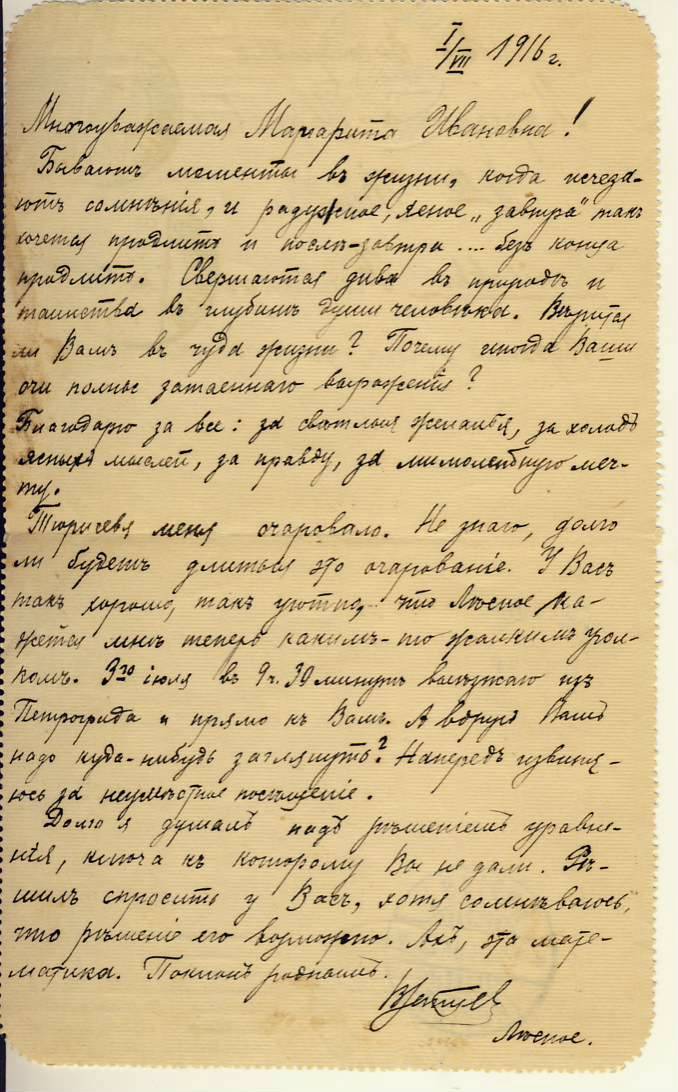 I/VII 1916 г.
Многоуважаемая Маргарита Ивановна!
Бываютъ моменты въ жизни, когда исчеза-
ютъ сомнѣнія, и радужное, ясное „завтра“ такъ
хочется продлить и послѣ-завтра .... безъ конца
продлить. Свершаются дива въ природѣ и
таинства въ глубинѣ души человѣка. Вѣрится
ли Вамъ въ чуда жизни? Почему иногда Ваши
очи полны затаеннаго выраженія?
Благодарю за все: за свѣтлыя желанья, за холодъ
ясныхъ мыслей, за правду, за мимолетную меч-
ту.
меня очаровало. Не знаю, долго
ли будетъ длиться это очарованіе. У Васъ
такъ хорошо, такъ уютно, что Лѣсное ка-
жется мнѣ теперь какимъ-то жалкимъ угол-
комъ. 3го іюля въ 9 ч. 39 минутъ выѣзжаю изъ
Петрограда и прямо къ Вамъ. А вдругъ Вамъ
надо куда-нибудь заглянуть? Напередъ извиня-
юсь за неумѣстное посѣщеніе.
Долго я думалъ надъ рѣшеніемъ уравне-
нія, ключа къ которому Вы не дали. Рѣ-
шилъ спросить у Васъ, хотя сомнѣваюсь,
что рѣшеніе его возможно. Ахъ, эта мате-
матика. Поклонъ роднымъ.
Лѣсное.